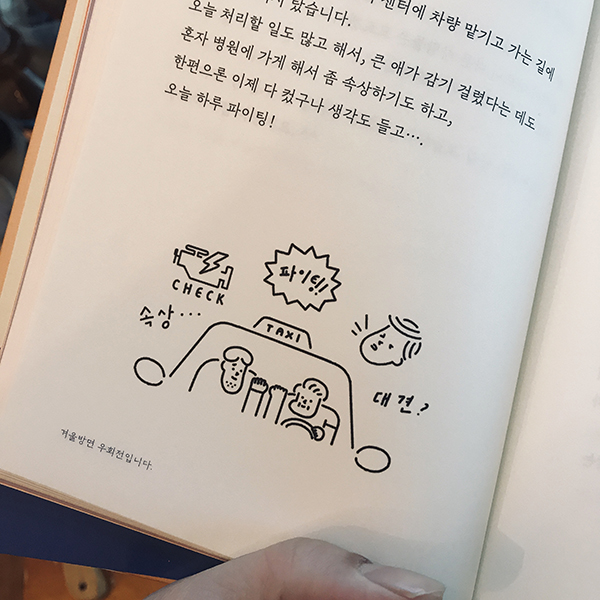 탔습니다.
센터에 차량 맡기고 가는 길에
오늘 처리할 일도 많고 해서, 큰 애가 감기 걸렸다는 데도
혼자 병원에 가게 해서 좀 속상하기도 하고,
한편으론 이제 다 컸구나 생각도 들고….
오늘 하루 파이팅!
CHECK
파이팅!!
속상…
TAXI
대견?
거울방면 우회전입니다.